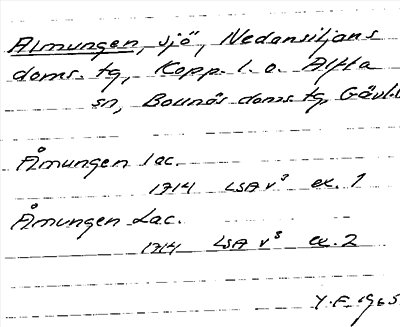 Almungen, sjö, Nedansiljans
doms. tg, Kopp. l. o. Alfta
sn, Bollnäs doms. tg, Gävl. l.
Åmungen lac.
1714 LSA V³ ex. 1
Åmungen Lac.
1714 LSA V³ ex. 2
Y.F. 1965